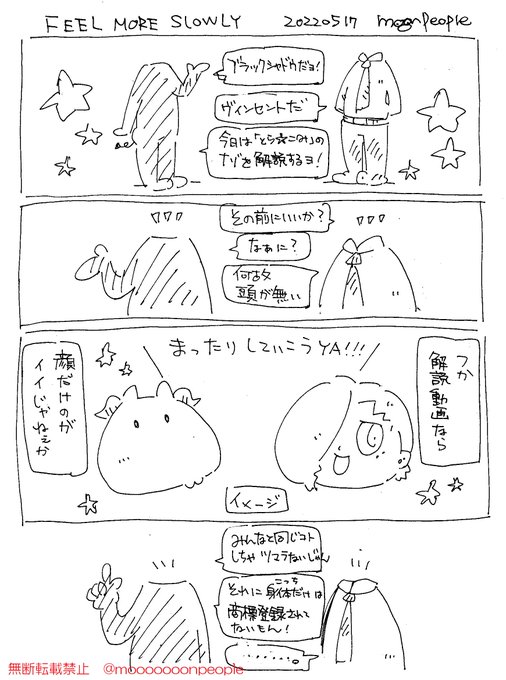 FEEL MORE SLOWLY 20220517 moonpeople
ブラックシャドウだョ!
ヴィンセントだ
今日は「とら☆こみ」の
ナゾを解説するヨ!
その前にいいか?
なぁに?
何故
頭が無い
まったりしていこうYA!!!
つか
解説動画なら
顔だけのが
イイじゃねぇか
イメージ
みんなと同じコト
しちゃツマラないじゃん
それに身体だけは
こっち
商標登録されて
ないもん!
・・・・・・。
無断転載禁止 @mooooooonpeople